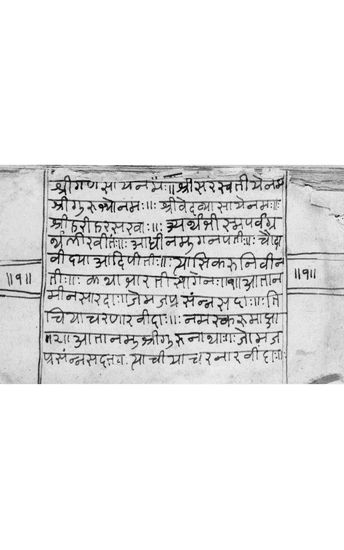 श्रीगणसायनमः॥श्रीसरस्वतीयेनम
श्रीगुरुभ्योनमः॥ श्रीवेदव्यासायेनमः॥
श्रीहरीहरसरवाः॥ अथश्रीसभपर्वग्रं
थलीखीतं॥ आधीनमुगनपती॥ चौदा
वीद्या आदिपीती॥ त्यासिकरुनिवीन
॥१॥ ती॥ कथाभारतीसांगेन॥१॥ आतान ॥१॥
मीनसारदा॥ जेमजप्रसंन्नसदा॥ ति
चियाचरणारवीदा॥ नमस्करुमाझा
॥२॥ आतानमुश्रीगुरुनाथा॥ जोमज
प्रसंन्नसद् त्याचीयाचरनारवींदा॥